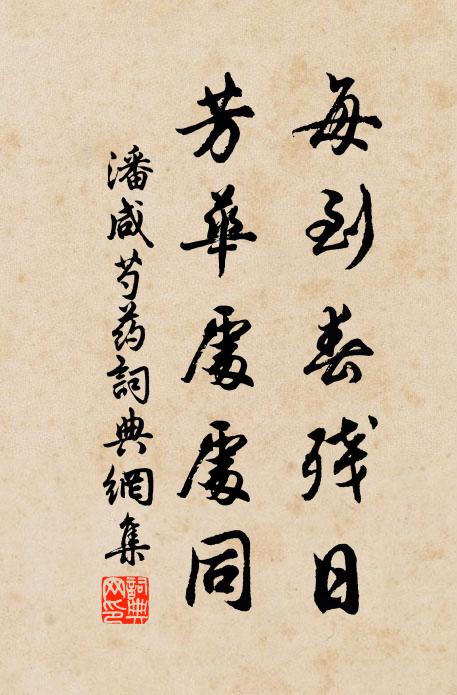 每到春残日
芳華處處同
潘咸芍药詞典網集
詞典网印